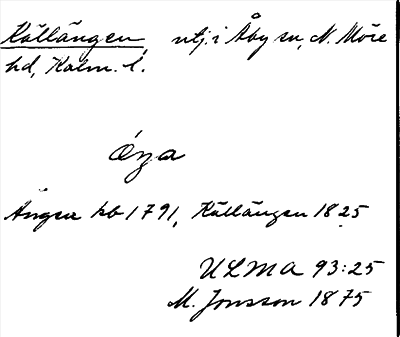 Källängen, utj. i Åby sn, N. Möre
hd, Kalm. l.
Öya
Ängen hb 1791, Källängen 1825
ULMA 93:25
M. Jonsson 1875